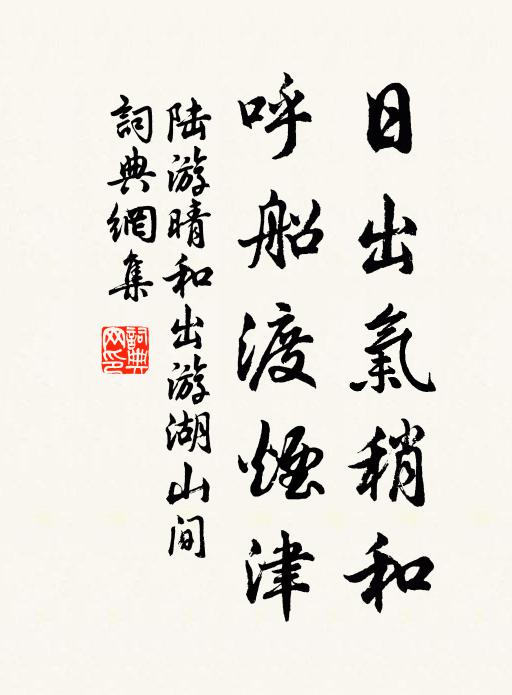 日出氣稍和
呼船渡煙津
陆游晴和出游湖山间
詞典網集
詞典网印